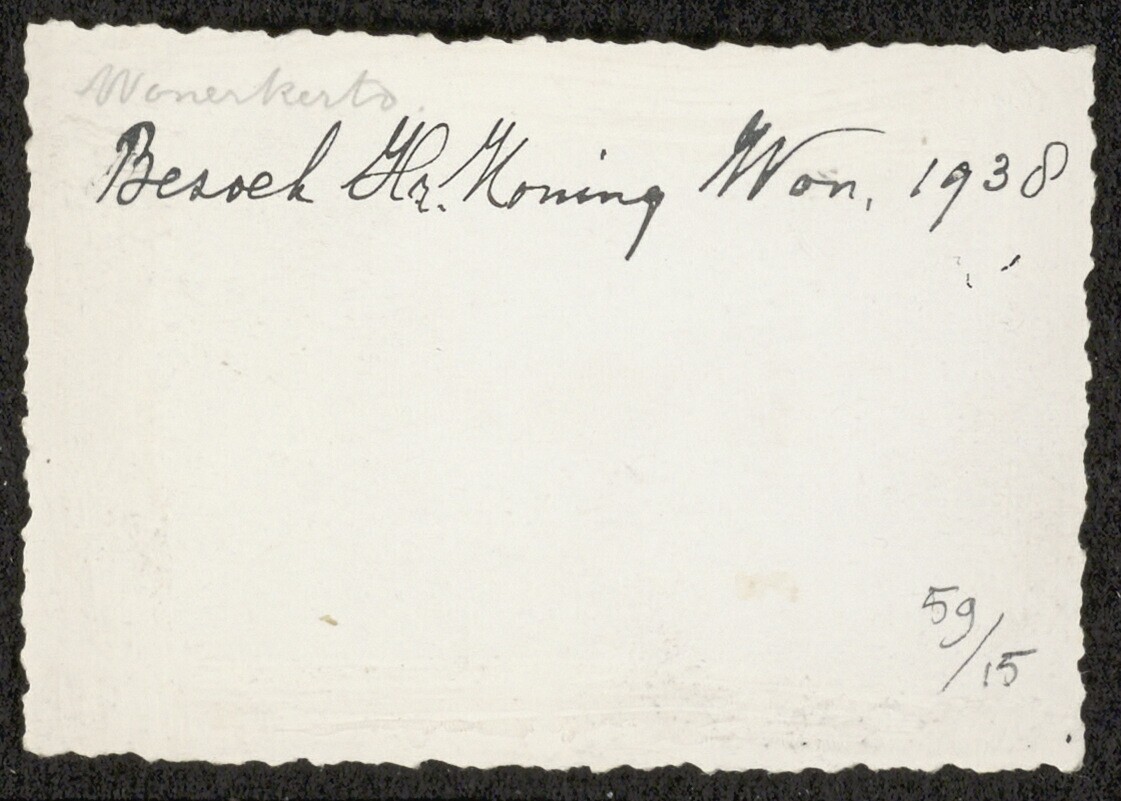 Wonerkerto
Besoek Hr. Koning Won. 1938
59/15